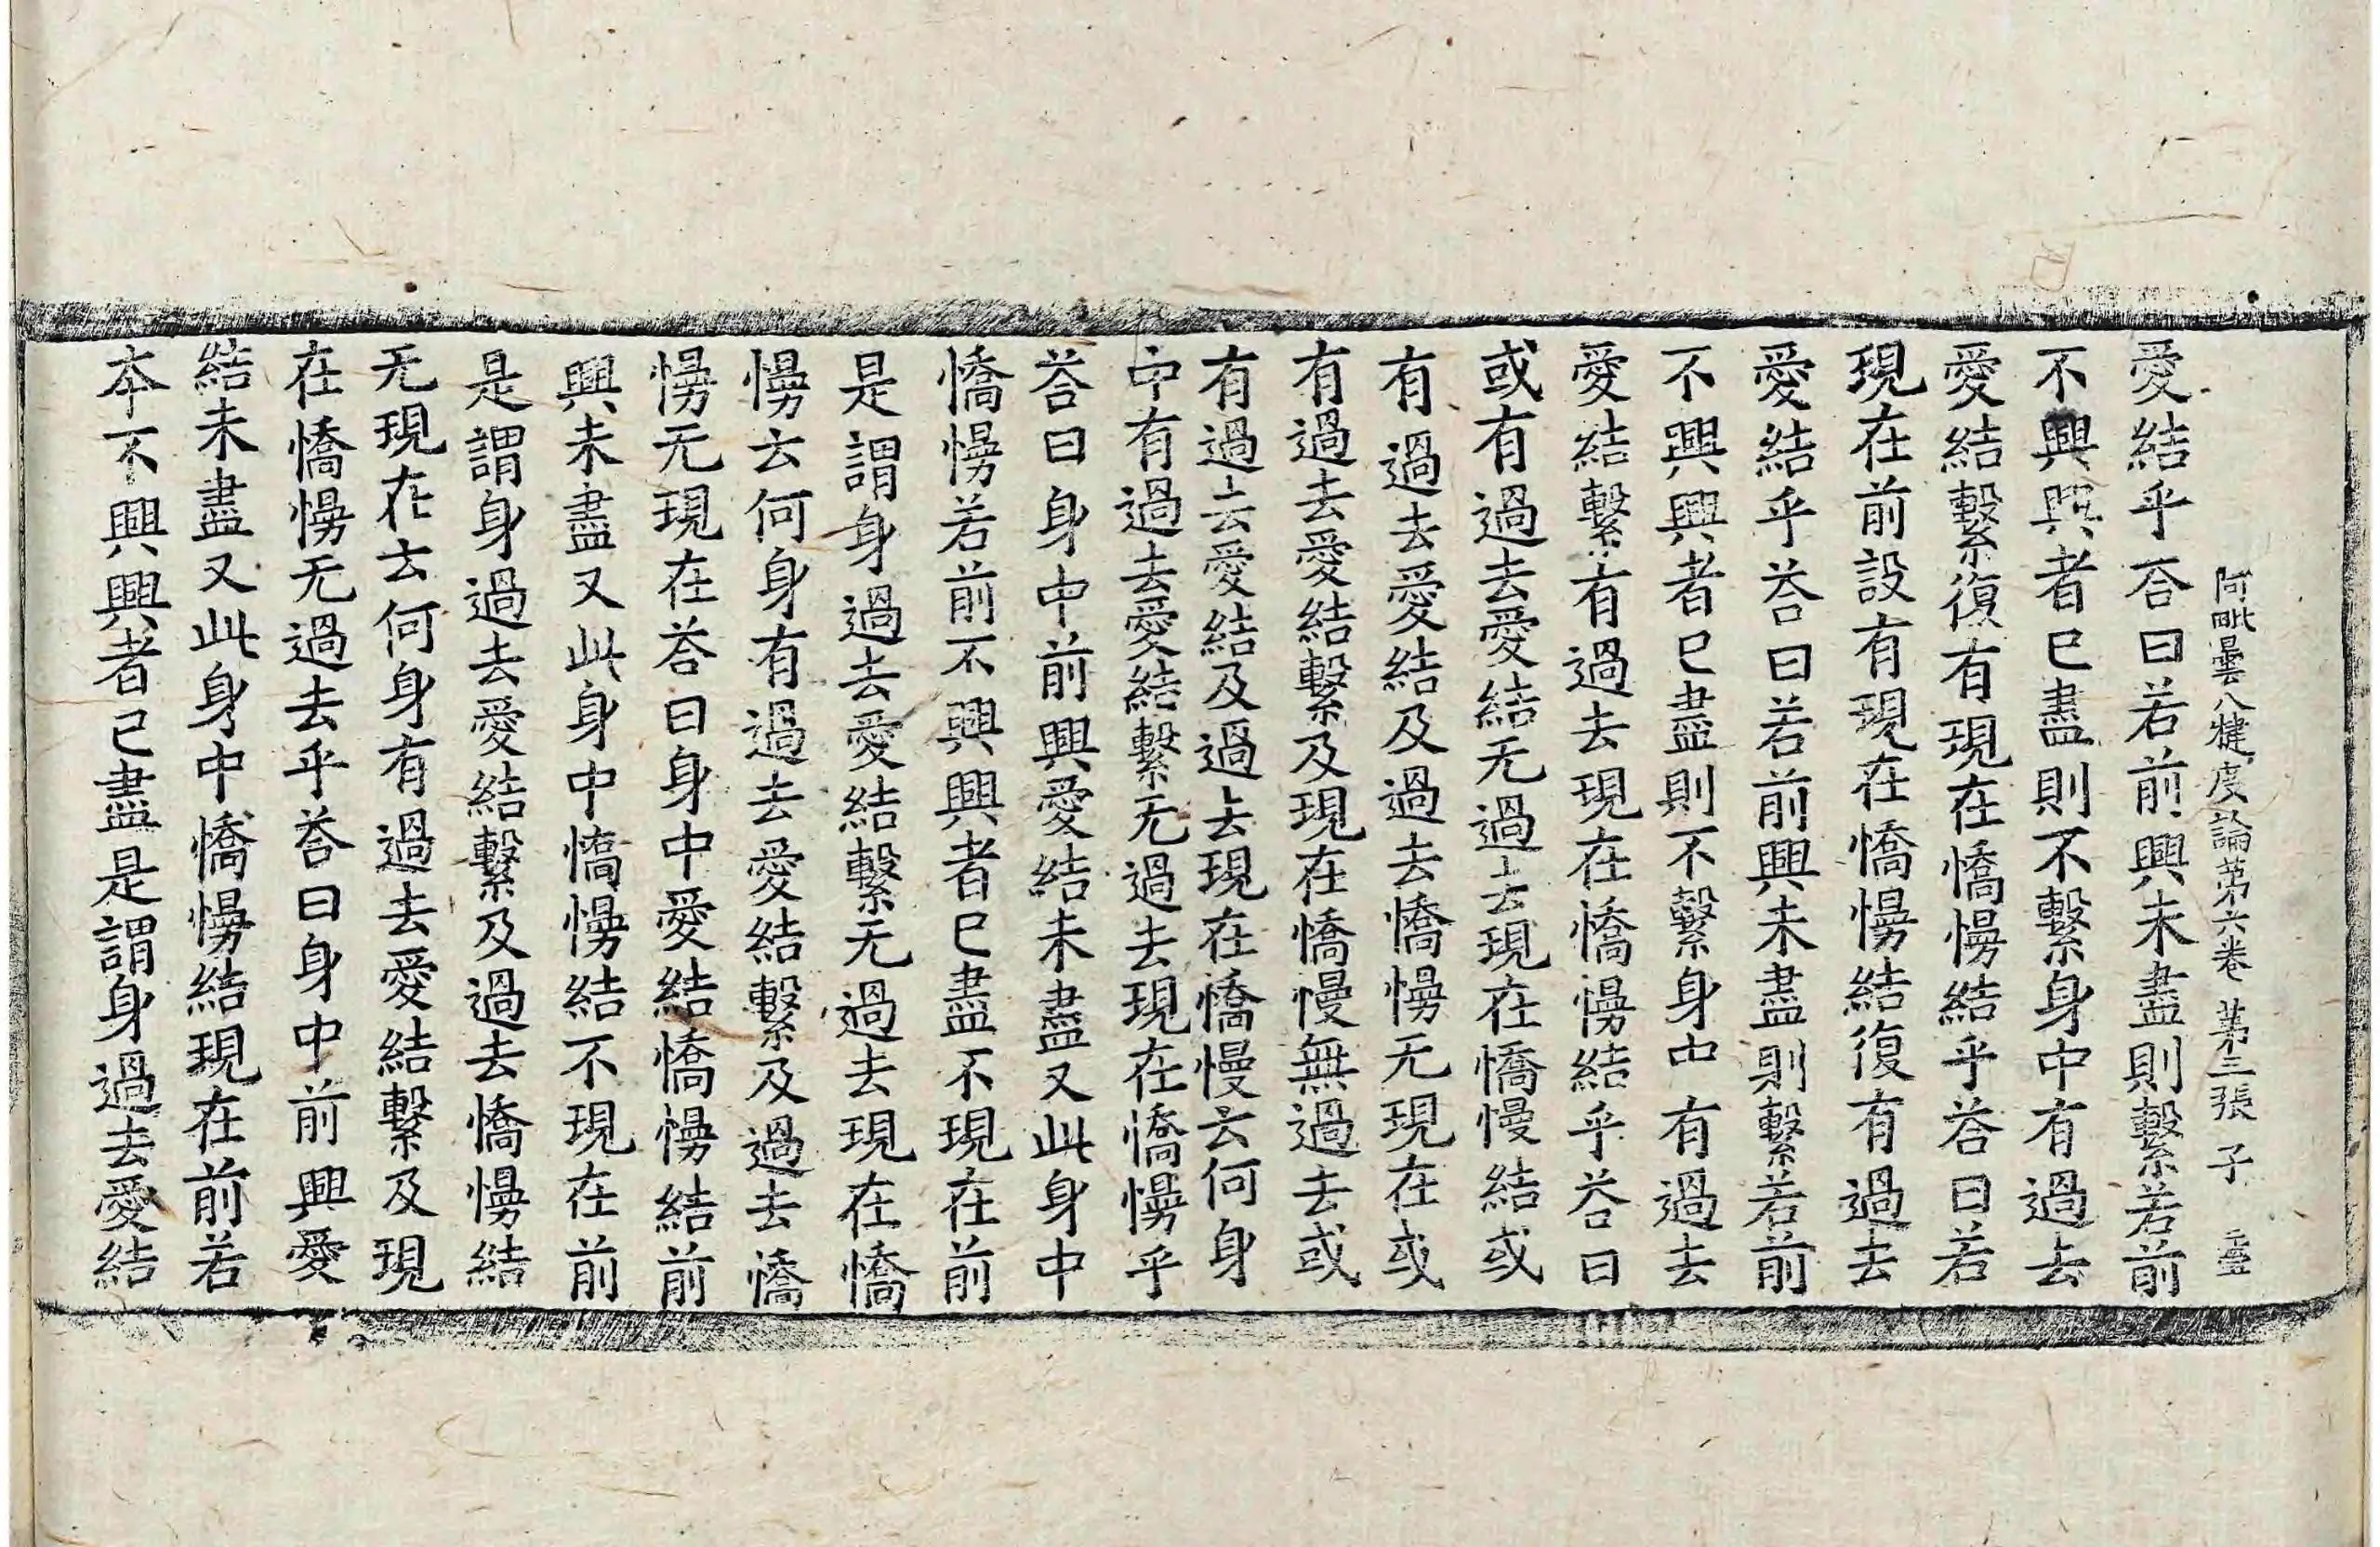 阿毗曇八犍度論第六卷 第三張 子
愛結乎荅曰若前興未盡則繫若前
不興興者已盡則不繫身中有過去
愛結繫復有現在憍慢結乎荅曰若
現在前設有現在憍慢結復有過去
愛結乎荅曰若前興未盡則繫若前
不興興者已盡則不繫身中有過去
愛結繫有過去現在憍慢結乎荅曰
或有過去愛結无過去現在憍慢結或
有過去愛結及過去憍慢无現在或
有過去愛結繫及現在憍慢無過去或
有過去愛結及過去現在憍慢云何身
中有過去愛結繫无過去現在憍慢乎
荅曰身中前興愛結未盡又此身中
憍慢若前不興興者已盡不現在前
是謂身過去愛結繫无過去現在憍
慢云何身有過去愛結繫及過去憍
慢无現在荅曰身中愛結憍慢結前
興未盡又此身中憍慢結不現在前
是謂身過去愛結繫及過去憍慢結
无現在云何身有過去愛結繫及現
在憍慢无過去乎荅曰身中前興愛
結未盡又此身中憍慢結現在前若
本不興興者已盡是謂身過去愛結